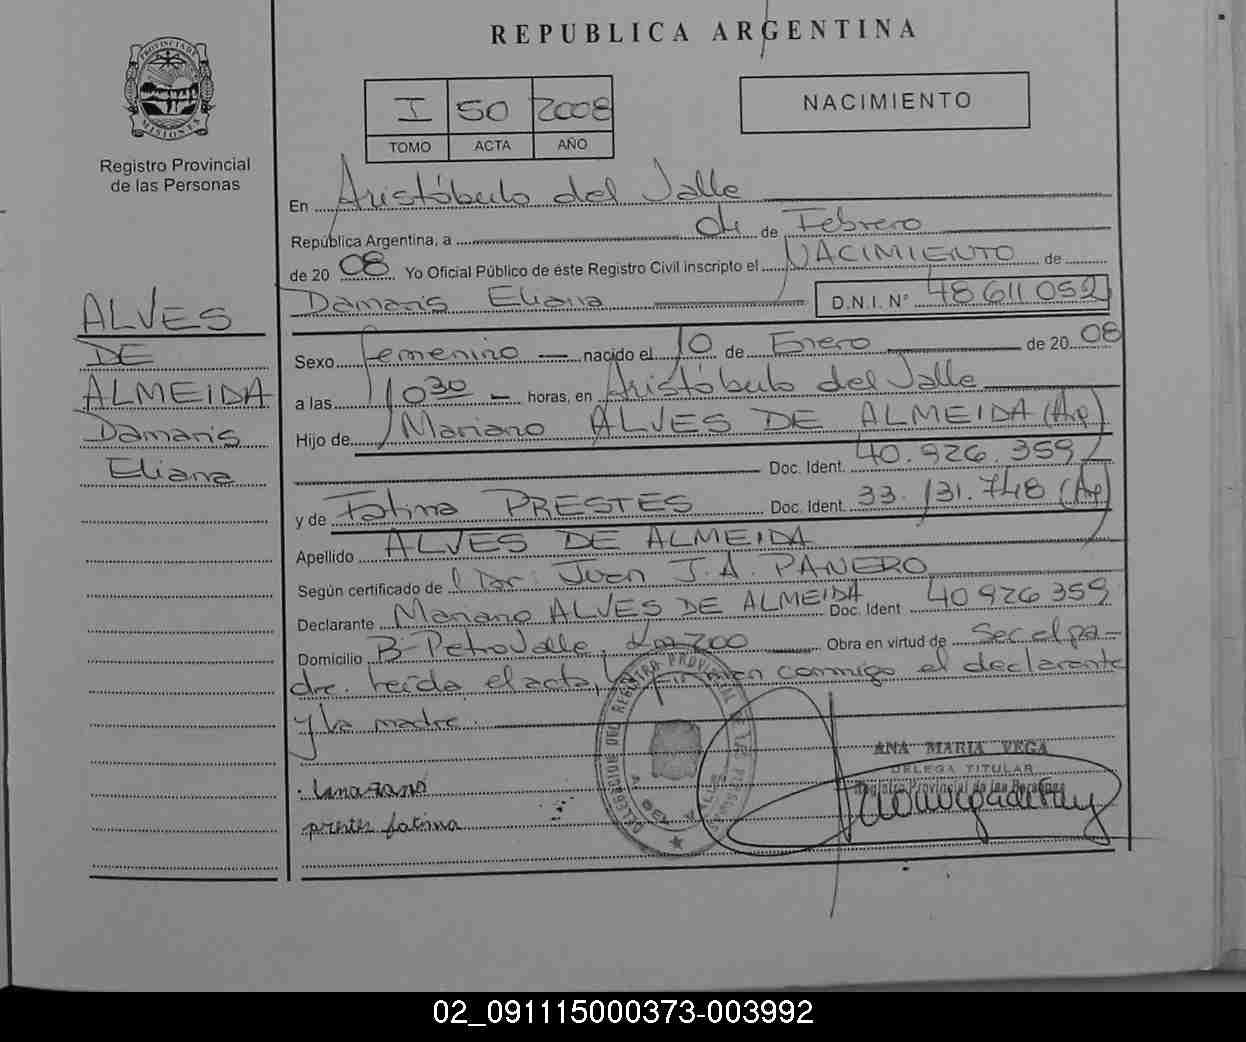 REPUBLICA ARGENTINA
PROVINCIA DE MISIONES
Registro Provincial
de las Personas
I 50 2008
TOMO ACTA AÑO
NACIMIENTO
En Aristóbulo del Valle
República Argentina, a 04 de Febrero
de 2008 Yo Oficial Público de éste Registro Civil inscripto el NACIMIENTO de
Damaris Eliana D.N.I. N° 48611052
ALVES
DE
ALMEIDA
Damaris
Eliana
Sexo femenino nacido el 10 de Enero de 2008
a las 10 30 horas, en Aristóbulo del Valle
Hijo de Mariano ALVES DE ALMEIDA (Arg)
Doc. Ident. 40.926.359
y de Fatima PRESTES Doc. Ident. 33.131.748 (Arg)
Apellido ALVES DE ALMEIDA
Según certificado de Dr. Juan J.A. PANERO
Declarante Mariano ALVES DE ALMEIDA Doc. Ident 40926359
Domicilio B- Petrovalle, Obra en virtud de Ser el pa-
dre. Leída el acta, firman conmigo el declarante
y la madre.
prestes fatima
ANA MARIA VEGA
DELEGA TITULAR
Registro Provincial de las Personas
02_091115000373-003992